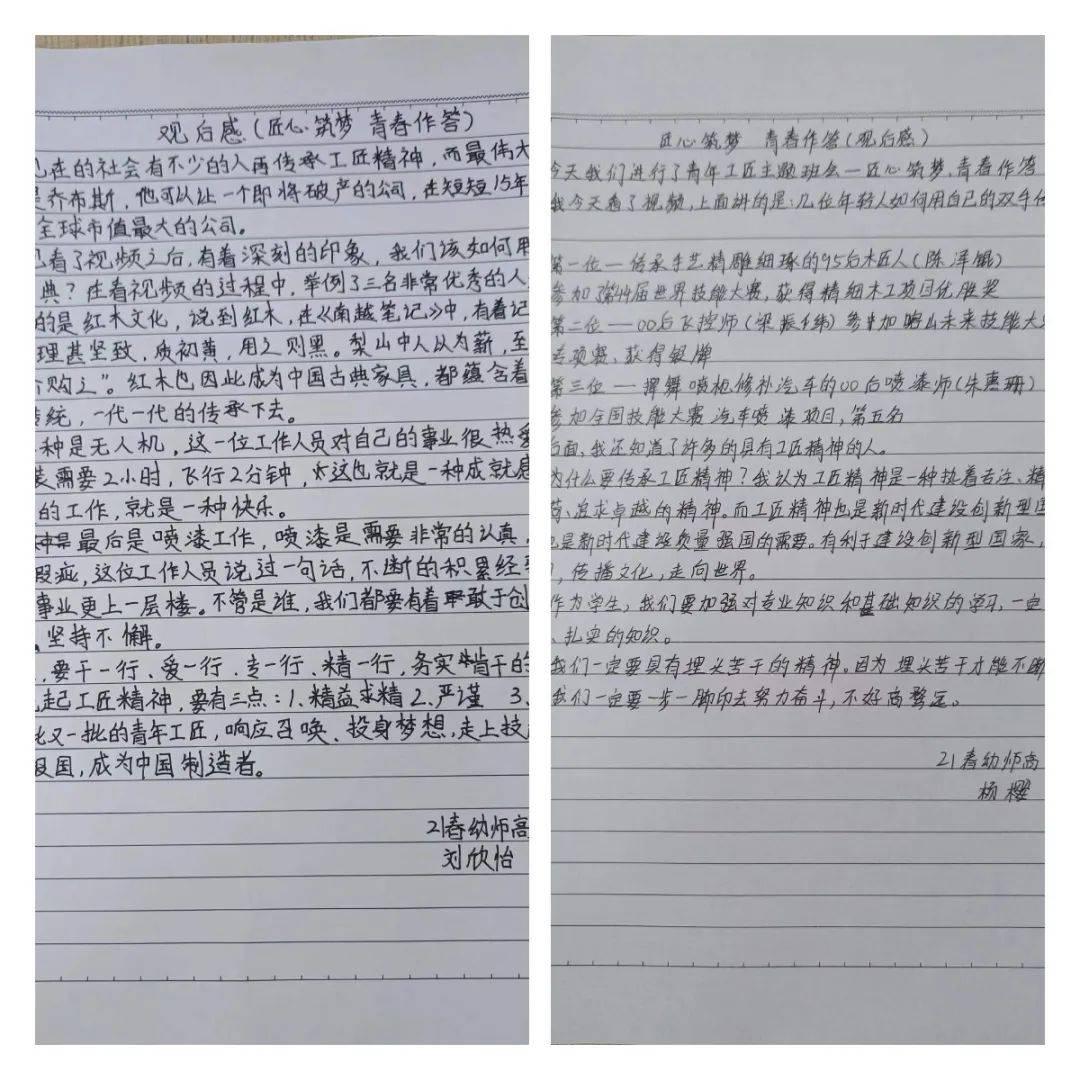 观后感(匠心筑梦 青春作答)
在的社会有不少的人再传承工匠精神，而最伟大
乔布斯，他可以让一个即将破产的公司，在短短15年
全球市值最大的公司。
看了视频之后，有着深刻的印象，我们该如何用
典？在看视频的过程中，举例了三名非常优秀的人
的是红木文化，说到红木，在《南越笔记》中，有着记
理甚坚致，质初黄，用之则黑。梨山中人以为薪，至
购之”。红木也因此成为中国古典家具，都蕴含着
统，一代一代的传承下去。
种是无人机，这一位工作人员对自己的事业很热爱
装需要2小时，飞行2分钟，这也就是一种成就感
的工作，就是一种快乐。
最后是喷漆工作，喷漆是需要非常的认真，
瑕疵，这位工作人员说过一句话，不断的积累经
事业更上一层楼。不管是谁，我们都要有着敢于创
坚持不懈。
，要干一行、爱一行、专一行、精一行，务实肯干的
起工匠精神，要有三点：1.精益求精 2.严谨 3.
批又一批的青年工匠，响应召唤、投身梦想，走上技
国，成为中国制造者。
21春幼师高
刘欣怡
匠心筑梦 青春作答(观后感)
今天我们进行了青年工匠主题班会—匠心筑梦，青春作答
我今天看了视频，上面讲的是：几位年轻人如何用自己的双手
第一位—传承手艺精雕细琢的95后木匠人(陈泽铤)
参加了第44届世界技能大赛，获得精细木工项目优胜奖
第二位—00后飞控师(梁振纬)参加明山未来技能大
专项赛，获得银牌
第三位—挥舞喷枪修补汽车的00后喷漆师(朱惠珊)
参加全国技能大赛汽车喷漆项目，第五名
后面，我还知道了许多的具有工匠精神的人。
为什么要传承工匠精神？我认为工匠精神是一种执着专注、精
、追求卓越的精神。而工匠精神也是新时代建设创新型国
也是新时代建设质量强国的需要。有利于建设创新型国家，
，传播文化，走向世界。
作为学生，我们要加强对专业知识和基础知识的学习，一定
、扎实的知识。
我们一定要具有埋头苦干的精神。因为埋头苦干才能不断
我们一定要一步一脚印去努力奋斗，不好高骛远。
21春幼师高
杨樱